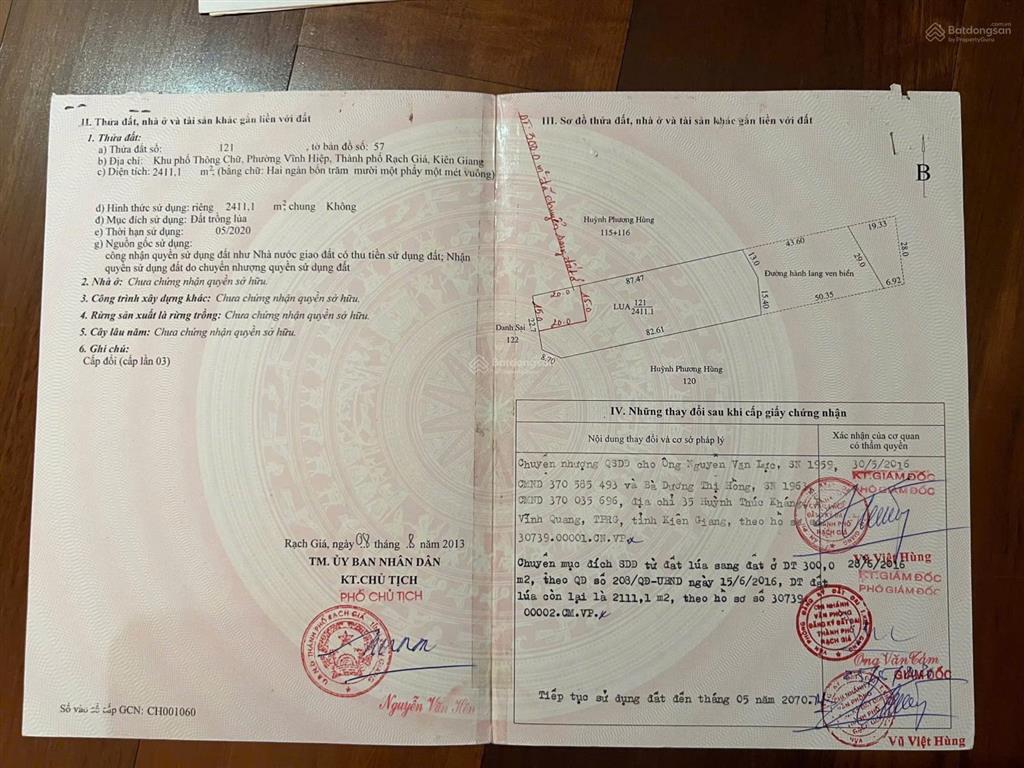 Batdongsan.com.vn
by PropertyGuru
II. Thửa đất, nhà ở và tài sản khác gắn liền với đất
1. Thửa đất:
a) Thửa đất số: 121 , tờ bản đồ số: 57
b) Địa chỉ: Khu phố Thông Chữ, Phường Vĩnh Hiệp, Thành phố Rạch Giá, Kiên Giang
c) Diện tích: 2411,1 m², (bằng chữ: Hai ngàn bốn trăm mười một phẩy một mét vuông)
d) Hình thức sử dụng: riêng 2411,1 m²; chung Không
đ) Mục đích sử dụng: Đất trồng lúa
e) Thời hạn sử dụng: 05/2020
g) Nguồn gốc sử dụng:
công nhận quyền sử dụng đất như Nhà nước giao đất có thu tiền sử dụng đất; Nhận
quyền sử dụng đất do chuyển nhượng quyền sử dụng đất
2. Nhà ở: Chưa chứng nhận quyền sở hữu.
3. Công trình xây dựng khác: Chưa chứng nhận quyền sở hữu.
4. Rừng sản xuất là rừng trồng: Chưa chứng nhận quyền sở hữu.
5. Cây lâu năm: Chưa chứng nhận quyền sở hữu.
6. Ghi chú:
Cấp đổi (cấp lần 03)
Rạch Giá, ngày 08 tháng 8 năm 2013
TM. ỦY BAN NHÂN DÂN
KT.CHỦ TỊCH
PHÓ CHỦ TỊCH
Nguyễn Văn Hôn
Số vào sổ cấp GCN: CH001060
III. Sơ đồ thửa đất, nhà ở và tài sản khác gắn liền với đất
B
DT 300,0 m² đã chuyển sang đất ở
Huỳnh Phương Hùng
115+116
43.60
19.33
28.0
29.0
13.0
Đường hành lang ven biển
87.47
20.0
15.0
LUA 121
2411.1
15.40
50.35
6.92
15.0
22.7
20.0
82.61
Danh Sại
122
8.70
Huỳnh Phương Hùng
120
Batdongsan
by PropertyGuru
IV. Những thay đổi sau khi cấp giấy chứng nhận
Nội dung thay đổi và cơ sở pháp lý
Xác nhận của cơ quan
có thẩm quyền
Chuyển nhượng QSDĐ cho Ông Nguyễn Văn Lực, SN 1959,
CMND 370 585 493 và Bà Dương Thị Hồng, SN 1961
CMND 370 035 696, địa chỉ 35 Huỳnh Thúc Kháng
Vĩnh Quang, TPRG, tỉnh Kiên Giang, theo hồ sơ
30739.00001.CN.VP
30/5/2016
KT.GIÁM ĐỐC
PHÓ GIÁM ĐỐC
Vũ Việt Hùng
Chuyển mục đích SDĐ từ đất lúa sang đất ở DT 300,0
m2, theo QĐ số 208/QĐ-UBND ngày 15/6/2016, DT đất
lúa còn lại là 2111,1 m2, theo hồ sơ số 30739
.00002.CM.VP
28/6/2016
KT.GIÁM ĐỐC
PHÓ GIÁM ĐỐC
CHI NHÁNH
VĂN PHÒNG
ĐĂNG KÝ ĐẤT ĐAI
THÀNH PHỐ
RẠCH GIÁ
Ong Văn Tám
Tiếp tục sử dụng đất đến tháng 05 năm 2070
GIÁM ĐỐC
Vũ Việt Hùng